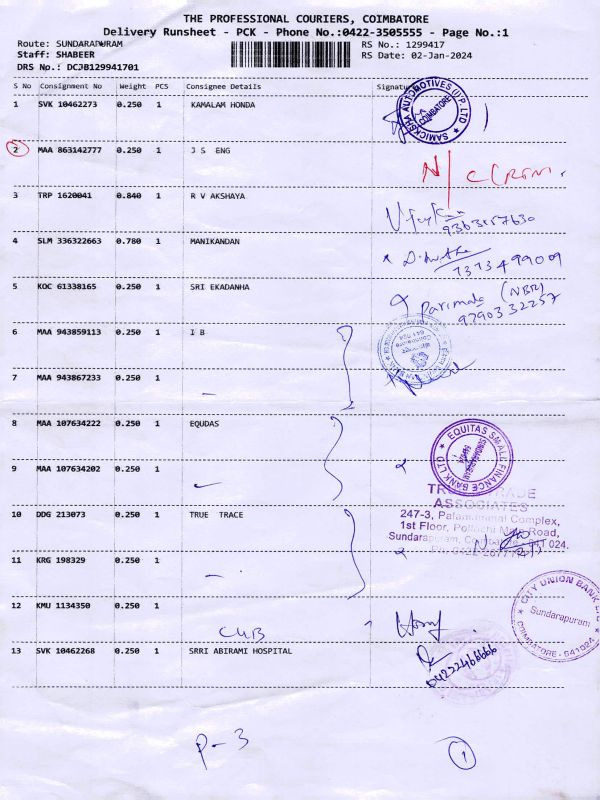 THE PROFESSIONAL COURIERS, COIMBATORE
Delivery Runsheet - PCK - Phone No.:0422-3505555 - Page No.:1
Route: SUNDARAPURAM RS No.: 1299417
Staff: SHABEER RS Date: 02-Jan-2024
DRS No.: DCJB129941701
S No Consignment No Weight PCS Consignee Details Signature
1 SVK 10462273 0.250 1 KAMALAM HONDA
SAMICKSHA AUTOMOTIVES (I) P. LTD COIMBATORE
2 MAA 863142777 0.250 1 J S ENG
3 TRP 1620041 0.840 1 R V AKSHAYA
9363157630
4 SLM 336322663 0.780 1 MANIKANDAN
7373499009
5 KOC 61338165 0.250 1 SRI EKADANHA
Parimala (NBR)
9790332257
6 MAA 943859113 0.250 1 I B
7 MAA 943867233 0.250 1
8 MAA 107634222 0.250 1 EQUDAS
EQUITAS SMALL FINANCE BANK LTD
9 MAA 107634202 0.250 1
ASSOCIATES
10 DDG 213073 0.250 1 TRUE TRACE
247-3, Palamannal Complex,
1st Floor, Pollachi Main Road,
Sundarapuram, Coimbatore 641 024.
11 KRG 198329 0.250 1
12 KMU 1134350 0.250 1
CUB
CITY UNION BANK LTD
Sundarapuram
COIMBATORE - 641024
13 SVK 10462268 0.250 1 SRRI ABIRAMI HOSPITAL
04222466666
P-3
1